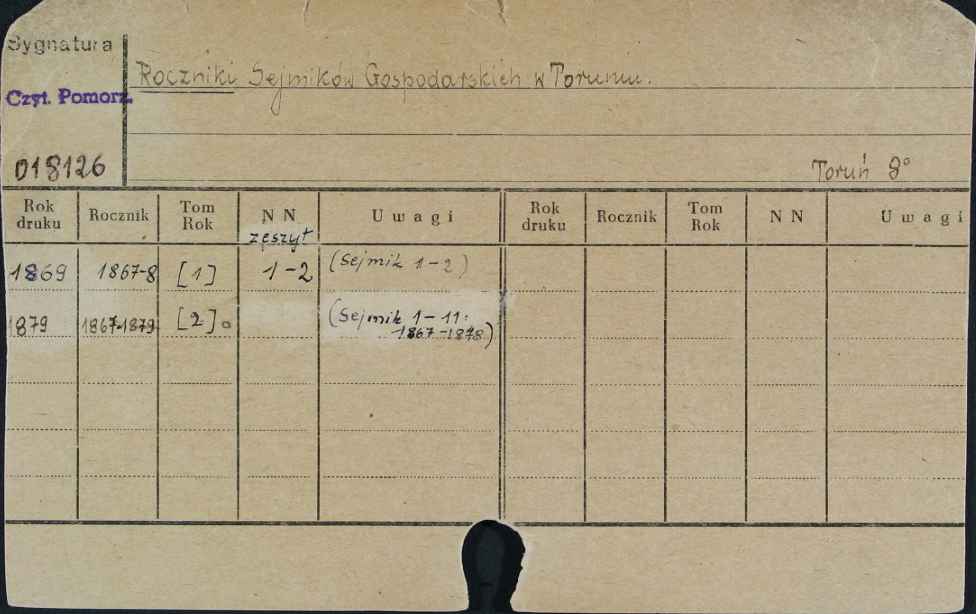 Sygnatura
Roczniki Sejmików Gospodarskich w Toruniu.
Czyt. Pomorz.
018126
Toruń 8°
Rok druku Rocznik Tom Rok N N zeszyt Uwagi Rok druku Rocznik Tom Rok N N Uwagi
1869 1867-8 [1] 1-2 (Sejmik 1-2)
1879 1867-1879 [2]. (Sejmik 1-11:
1867-1878)